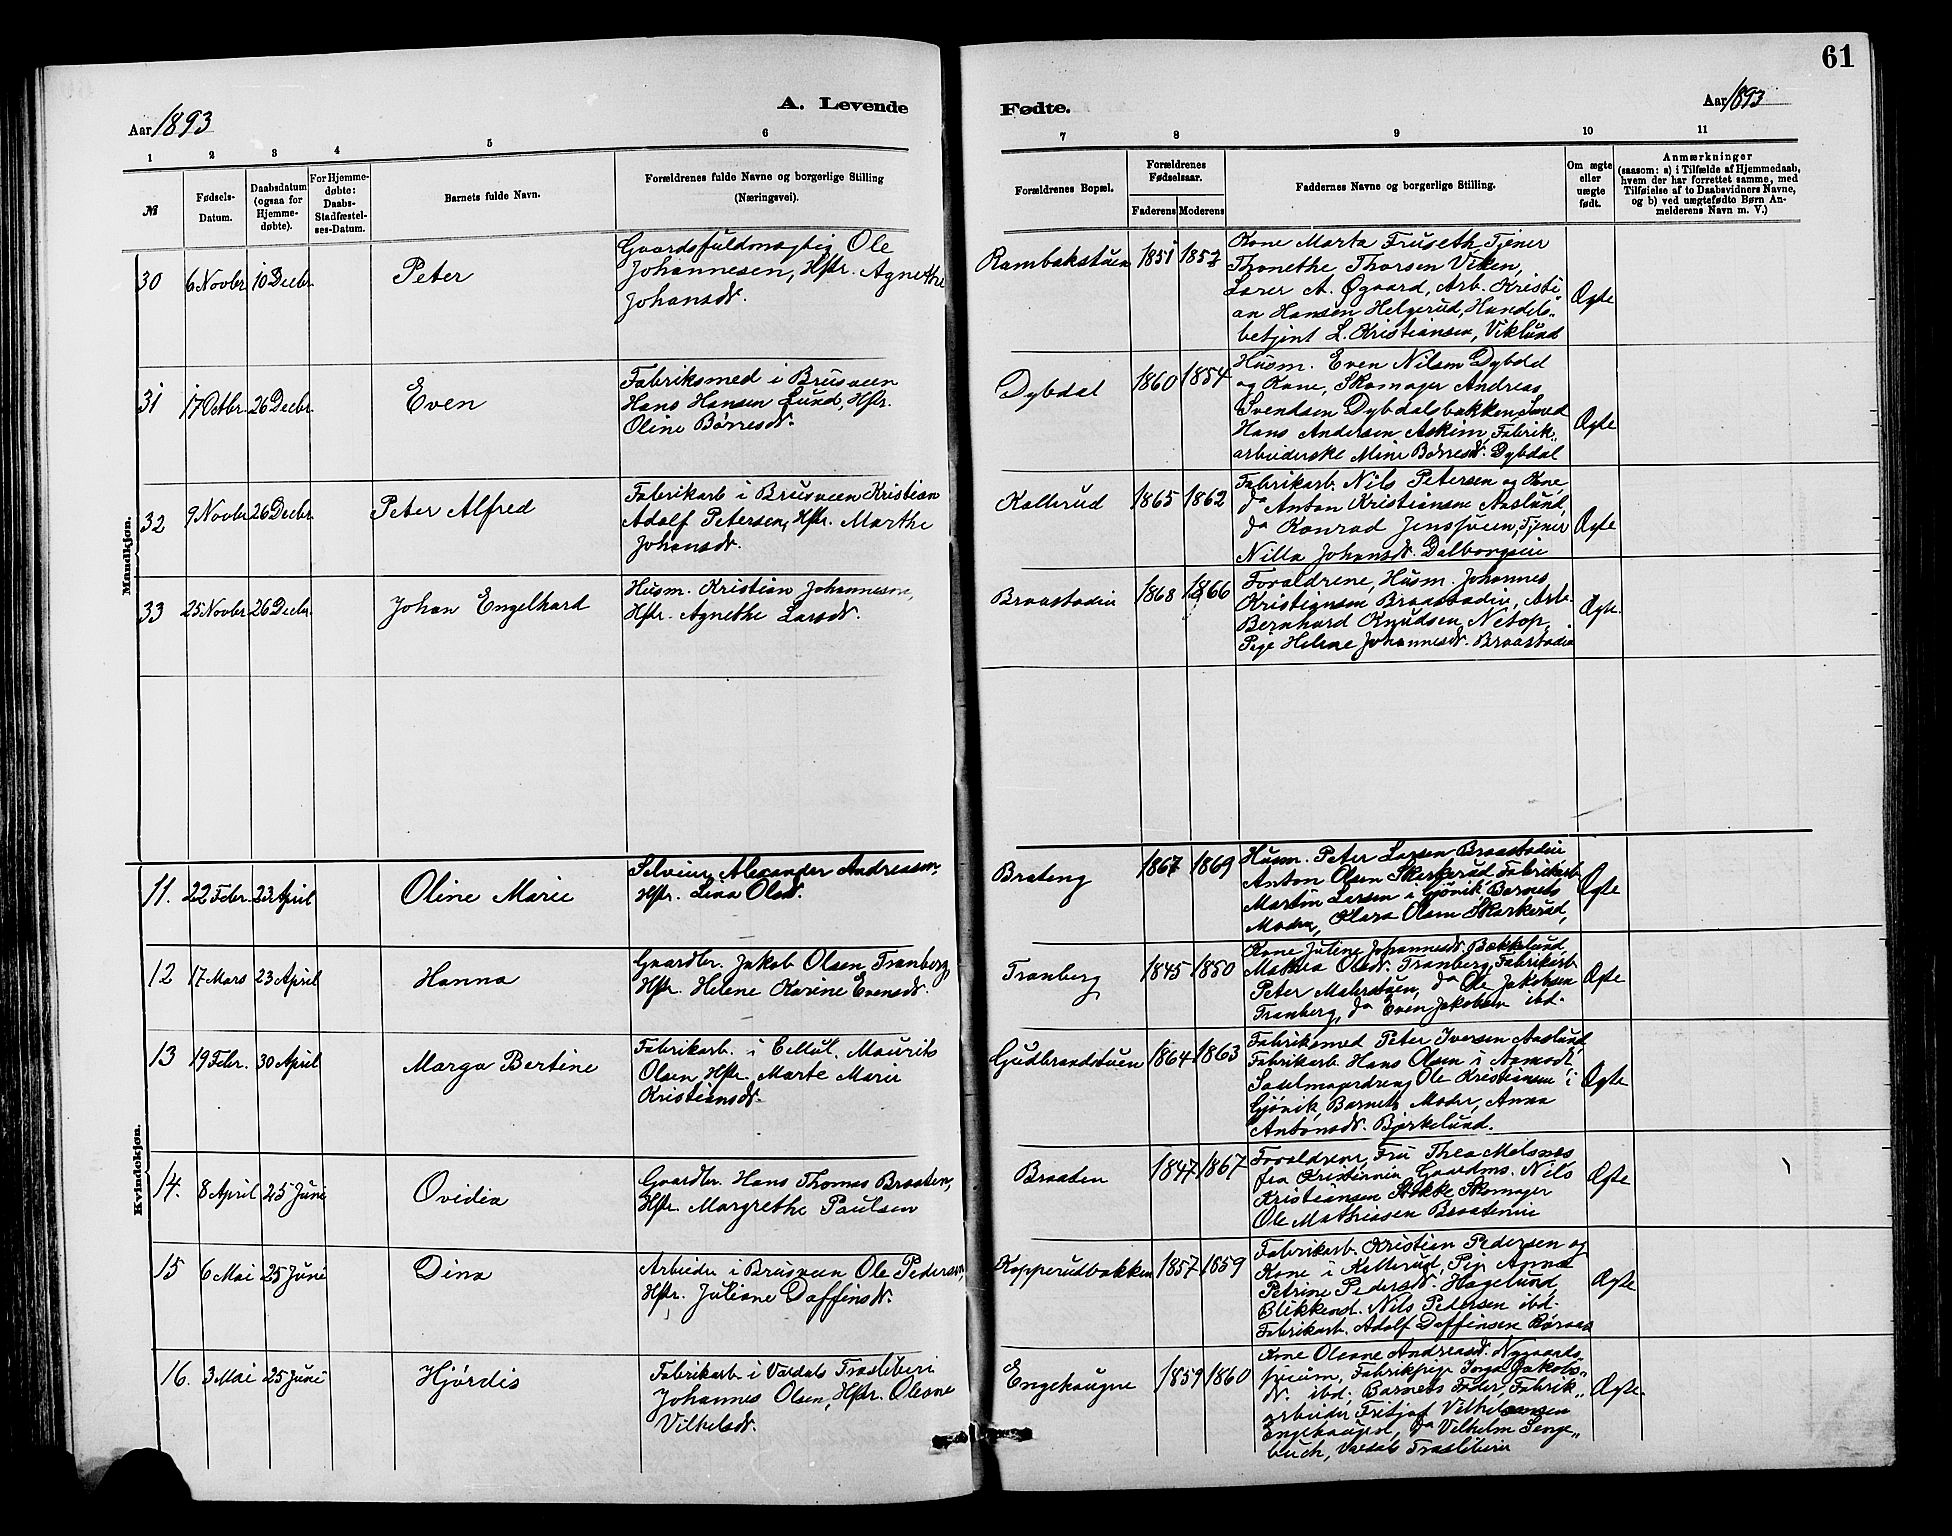 61
Aar 1893
A. Levende
Fødte.
Aar 1893
1 2 3 4 5 6
7 8 9 10 11
№
Fødsels-
Datum.
Daabsdatum
(ogsaa for
Hjemme-
døbte).
For Hjemme-
døbte:
Daabs-
Stadfæstel-
ses-Datum.
Barnets fulde Navn.
Forældrenes fulde Navne og borgerlige Stilling
(Næringsvei).
Forældrenes Bopæl.
Forældrenes
Fødselsaar.
Faderens Moderens
Faddernes Navne og borgerlige Stilling.
Om ægte
eller
uægte
født.
Anmærkninger
(saasom: a) i Tilfælde af Hjemmedaab,
hvem der har forrettet samme, med
Tilføielse af to Daabsvidners Navne,
og b) ved uægtefødte Børn An-
melderens Navn m. V.)
Mandkjøn.
30 6 Novbr 10 Decbr. Peter
Gaardsfuldmægtig Ole
Johannesen, Hstr. Agnethe
Johansdr.
Rambækstuen 1851 1852
Kone Marta Fruseth, Tjener
Thonethe Thorsen Viken,
Lærer A. Øgaard, Arb. Kristi
an Hansen Helgerud, Handels-
betjent L. Kristiansen, Viklund
Ægte
31 17 Octbr. 26 Decbr. Even
Fabriksmed i Brusveen
Hans Hansen Lund, Hstr.
Oline Børresdr.
Dybdal 1860 1854
Husm. Even Nilsen Dybdal
og Kone, Skomager Andreas
Svendsen Dybdalsbakken, Smed
Hans Andersen Askim, Fabrik-
arbeiderske Mine Børresdr. Dybdal
Ægte
32 9 Novbr 26 Decbr. Peter Alfred
Fabrikarb. i Brusveen Kristian
Adolf Petersen, Hstr. Marthe
Johansdr.
Kallerud 1865 1862
Fabrikarb. Nils Petersen og Kone
do Anton Kristiansen Aaslund,
do Konrad Jensveen, Tjener
Nilla Johansdr. Dalborgeie
Ægte
33 25 Novbr 26 Decbr. Johan Engelhard
Husm. Kristian Johannesen,
Hstr. Agnethe Larsdr.
Braastadeie 1868 1866
Forældrene, Husm. Johannes
Kristiansen Braastadeie, Arb.
Bernhard Knudsen Netop,
Pige Helene Johannesdr. Braastadeie
Ægte.
Kvindekjøn.
11. 22 Febr. 23 April Oline Marie
Selveier Alexander Andreasen,
Hstr. Lina Olsdr.
Brateng 1867 1869
Husm. Peter Larsen Braastadeie
Anton Olsen Skarkerud, Fabrikarb.
Martin Larsen i Gjøvik, Barnets
Moder, Klara Olsen Skarkerud,
Ægte
12 17 Mars 23 April Hanna
Gaardbr. Jakob Olsen Tranberg
Hstr. Helene Karine Evensdr.
Tranberg 1845 1850
Kone Juline Johannesdr. Bækkelund
Mathea Olsdr. Tranberg, Fabrikarb.
Peter Mælrstuen, do Ole Jakobsen
Tranberg, do Even Jakobsen ibd.
Ægte
13 19 Febr. 30 April Marga Bertine
Fabrikarb. i C Mül. Maurits
Olsen, Hstr. Marte Marie
Kristiansdr.
Gudbrandstuen 1864 1863
Fabriksmed Peter Iversen Aaslund,
Fabrikarb. Hans Olsen i Aamodt,
Sadelmagerdreng Ole Kristiansen i
Gjøvik, Barnets Moder, Anna
Antonsdr. Bjerkelund.
Ægte
14. 8 April 25 Juni Ovidia
Gaardbr. Hans Thomas Braaten,
Hstr. Margrethe Paulsen
Braaten 1847 1867
Forældrene, Fru Thea Melsnes
fra Kristiania, Gaardms. Nils
Kristiansen Stokke, Skomager
Ole Mathiasen Braateneie
Ægte
15 6 Mai 25 Juni Dina
Arbeider i Brusveen Ole Pedersen,
Hstr. Juliane Daffinsdr.
Kopperudbakken 1857 1859
Fabrikarb. Kristian Pedersen og
Kone i Kallerud, Pige Anna
Petrine Pedersdr. Hagelund,
Blikkensl. Nils Pedersen ibd.
Fabrikarb. Adolf Daffinsen
Ægte
16. 3 Mai 25 Juni Hjørdis
Fabrikarb. i Vardals Træsliberi
Johannes Olsen, Hstr. Oleane
Vilhelsdr.
Engehaugne 1859 1860
Kone Oleane Andreasdr. Nygaards
Fabrikpige Inga Jakobs-
dr. ibd. Barnets Fader, Fabrik-
arbeider Fritjof Vilhelmsen
Engehaugen, do Vilhelm Senge-
buch, Vardals Træsliberi
Ægte.